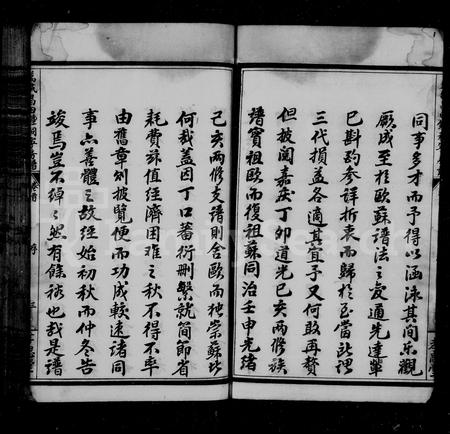 同事多才而予得以涵泳其間樂觀
厥成至於歐蘇譜法之變通先達輩
已斟酌參詳折衷而歸於至當所謂
三代損益各適其宜予又何敢再贅
但披閱嘉庆丁卯道光己亥兩修族
譜實祖歐而復祖蘇同治壬申光緒
己亥兩修支譜則舍歐而獨崇蘇此
何哉蓋因丁口蕃衍刪繁就簡節省
耗費玆值經濟困难之秋不得不率
由舊章刻披覽便而功成較速诸同
事亦善體之故經始初秋而仲冬告
竣焉豈不綽綽然有餘裕也哉是譜